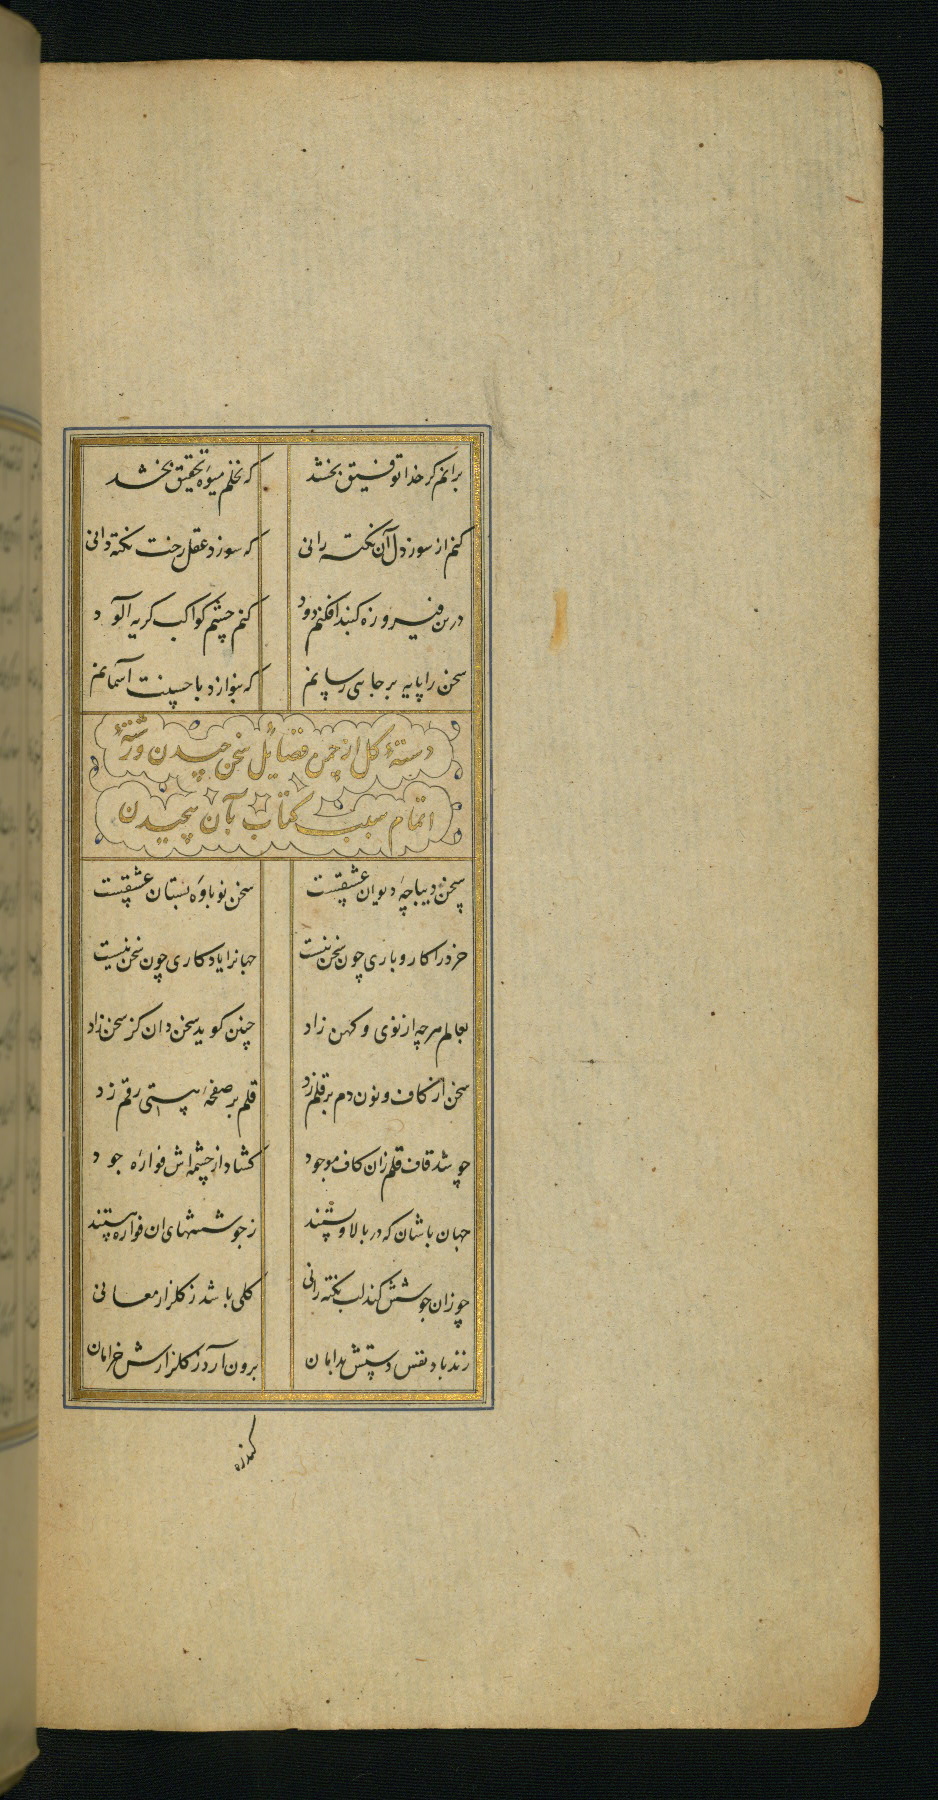 برانم گر خدا توفیق بخشد که نخلم میوهٔ تحقیق بخشد
کنم از سوز دل آن نکته رانی که سوزد عقل رخت نکته دانی
درین فیروزه گنبد افکنم دود کنم چشم کواکب گریه آلود
سخن را پایه بر جایی رسانم که بنوازد باحسنت آسمانم
دستهٔ گل از چمن فضایل سخن چیدن و رشتهٔ
اتمام سبب کتاب بآن پیچیدن
سخن دیباچهٔ دیوان عشقست سخن نوباوهٔ بستان عشقست
خرد را کار و باری چون سخن نیست جهانرا یادگاری چون سخن نیست
بعالم هرچه از نوی و کهن زاد چنین گوید سخن دان کز سخن زاد
سخن از کاف و نون دم بر قلم زد قلم بر صفحهٔ هستی رقم زد
چو شد قاف قلم زان کاف موجود گشاد از چشمه اش فوارهٔ جود
جهان باشان که در بالا و پستند ز جوششهای آن فواره هستند
چو زان جوشش کند لب نکته رانی گلی باشد ز گلزار معانی
زند باد نفس دستش بدامان برون آرد ز گلزارش خرامان